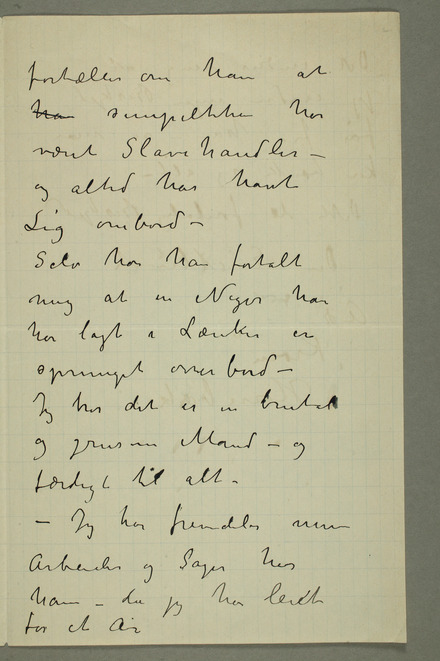 fortælles om ham at
han simpelthen har
været Slavehandler –
og altid har havt
Lig ombord –
Selv har han fortalt
mig at en Neger han
har lagt i Lænker er
sprunget overbord –
Jeg tror det er en brutal
og grusom Mand – og
færdigt til alt –
– Jeg har fremdeles mine
Arbeider og Sager hos
ham – da jeg har leiet
for et Aar